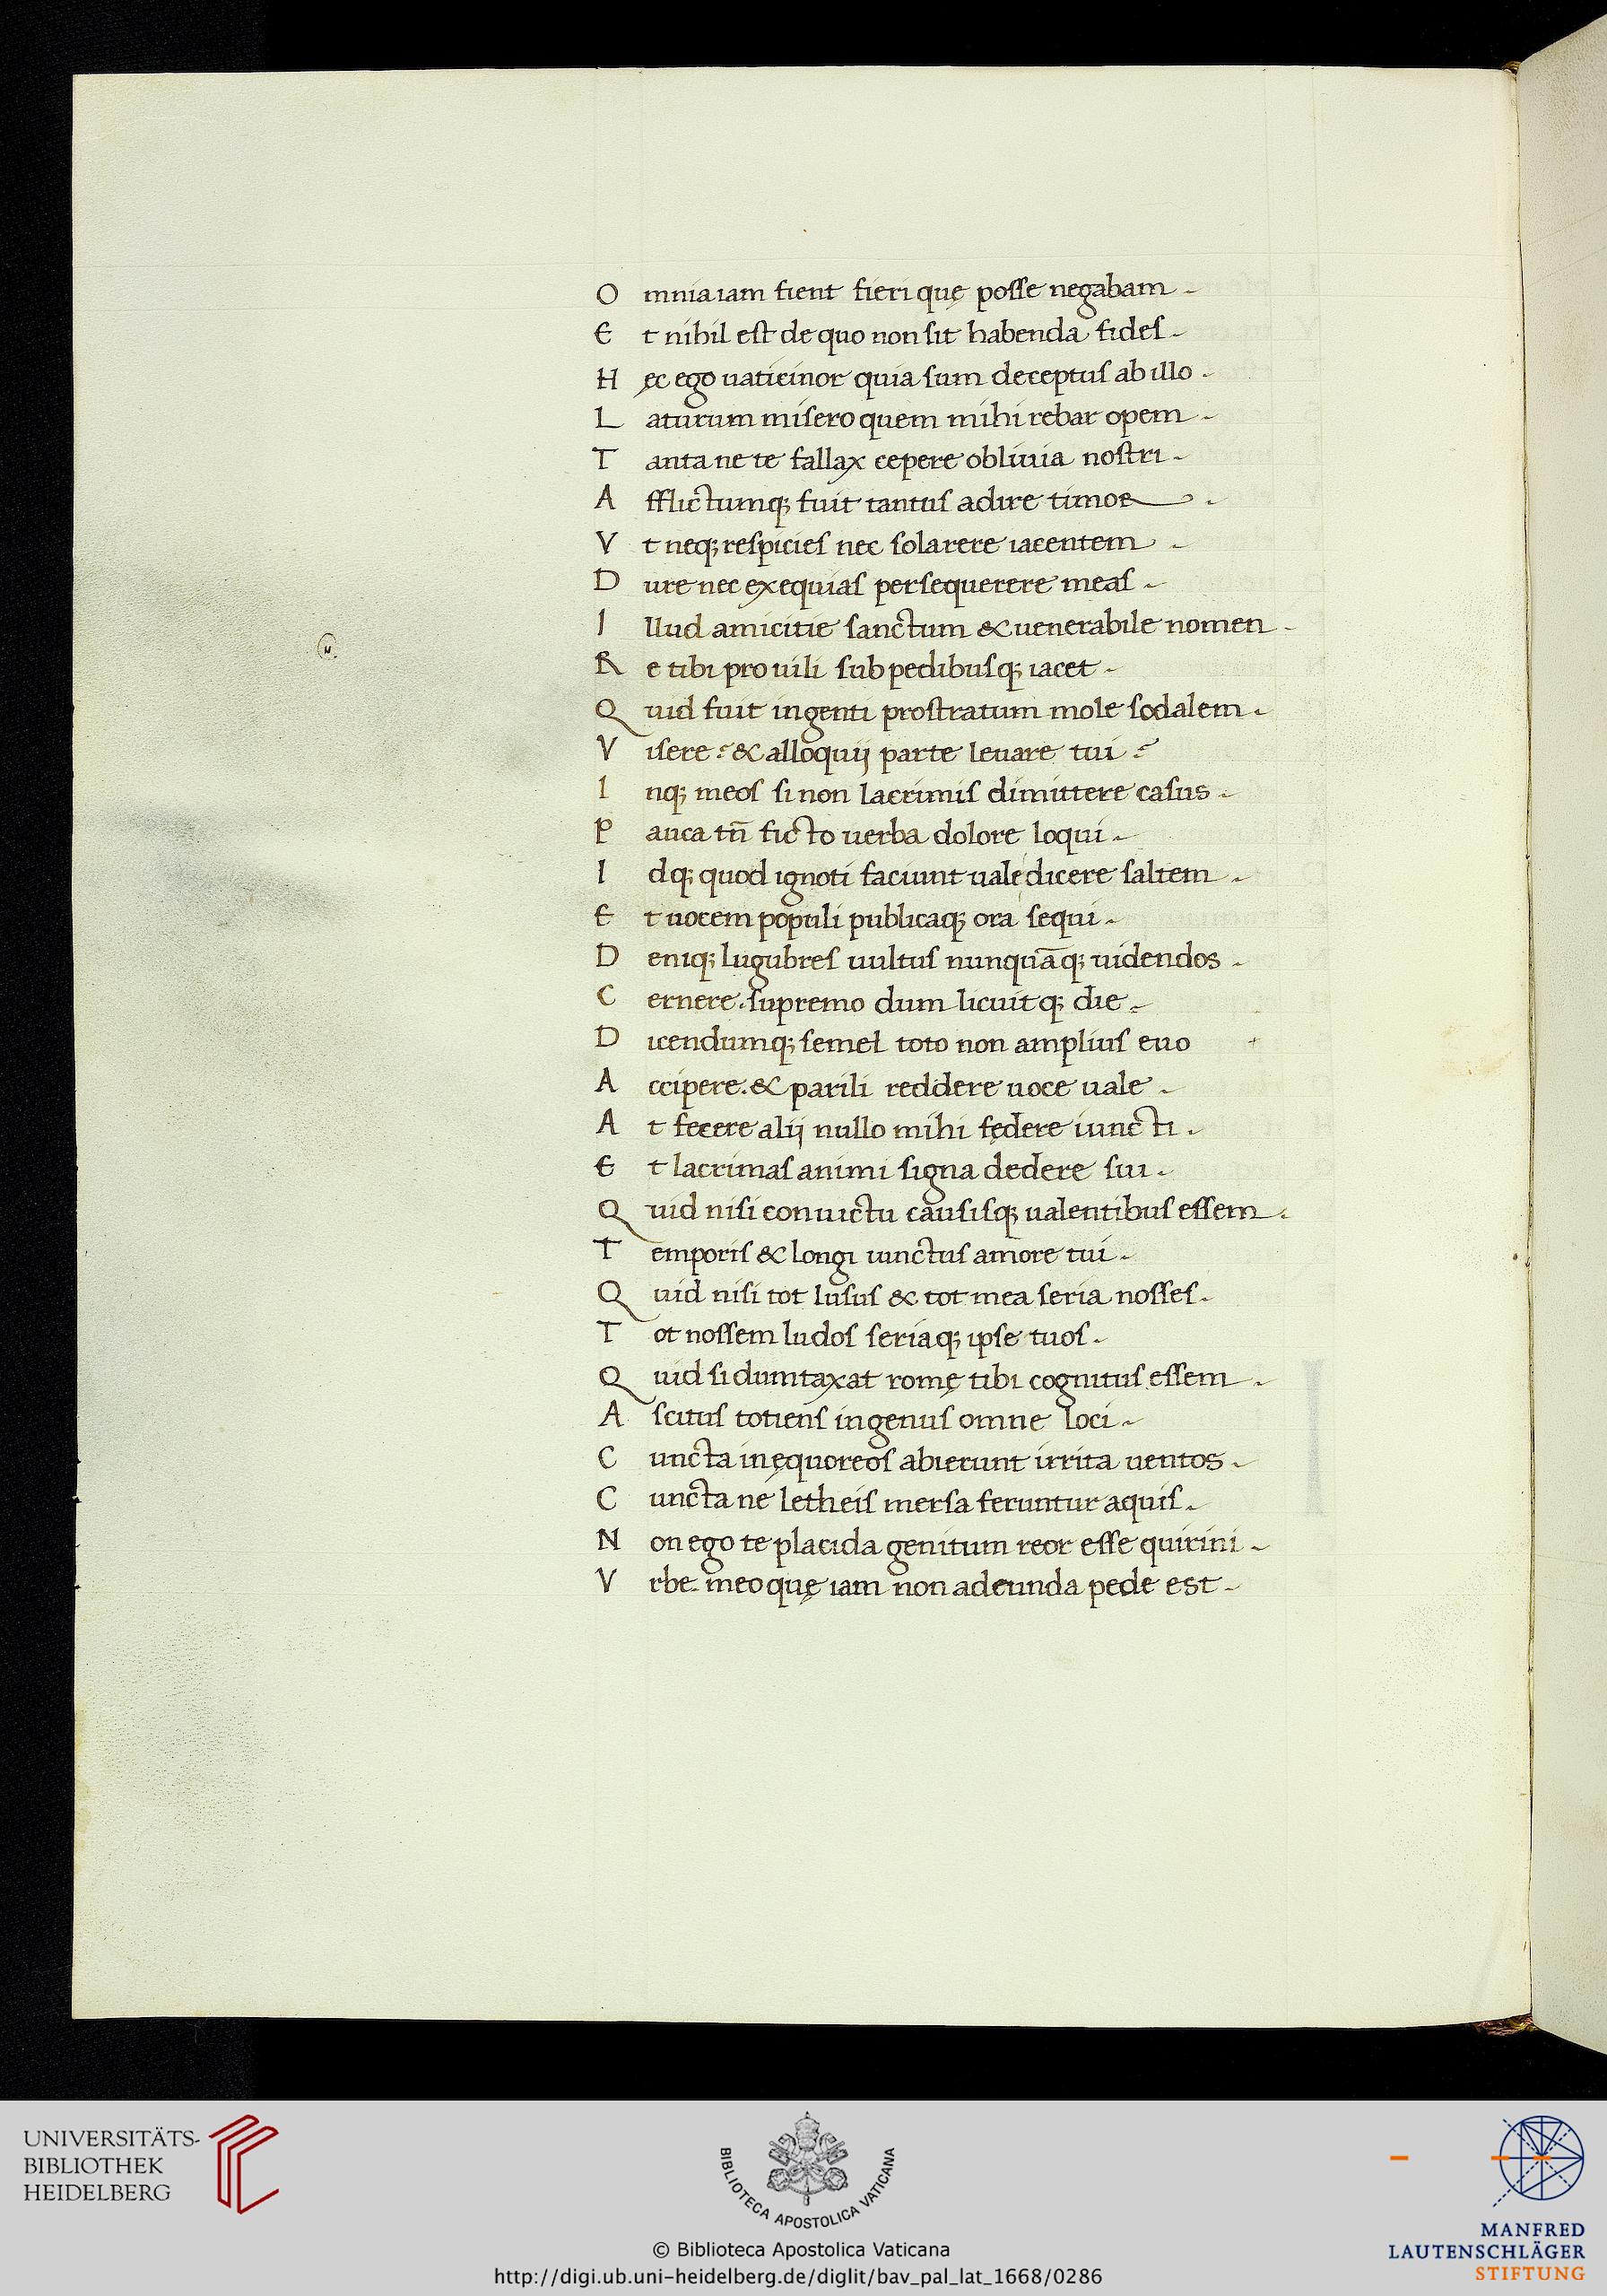 O mnia iam fient fieri quę posse negabam
E t nihil est de quo non sit habenda fides
H ęc ego uaticinor quia sum deceptus ab illo
L aturum misero quem mihi rebar opem
T anta ne te fallax cepere obliuia nostri
A fflictumq; fuit tantus adire timor
V t neq; respicies nec solarere iacentem
D ure nec exequias persequerere meas
I llud amicitie sanctum & uenerabile nomen
R e tibi pro uili sub pedibusq; iacet
Q uid fuit ingenti prostratum mole sodalem
V isere? & alloquij parte leuare tui?
I nq; meos si non lacrimis dimittere casus
P auca tñ ficto uerba dolore loqui
I dq; quod ignoti faciunt uale dicere saltem
E t uocem populi publicaq; ora sequi
D eniq; lugubres uultus nunquāq; uidendos
C ernere. supremo dum licuitq; die
D icendumq; semel toto non amplius euo
A ccipere. & parili reddere uoce uale
A t fecere alij nullo mihi fędere iuncti
E t lacrimas animi signa dedere sui
Q uid nisi conuictu causisq; ualentibus essem
T emporis & longi iunctus amore tui
Q uid nisi tot lusus & tot mea seria nosses
T ot nossem ludos seriaq; ipse tuos
Q uid si dumtaxat romę tibi cognitus essem
A scitus totiens ingenus omne loci
C uncta in ęquoreos abierunt irrita uentos
C uncta ne letheis mersa feruntur aquis
N on ego te placida genitum reor esse quirini
V rbe. meo quę iam non adeunda pede est
UNIVERSITÄTS-
BIBLIOTHEK
HEIDELBERG
BIBLIOTECA APOSTOLICA VATICANA
© Biblioteca Apostolica Vaticana
http://digi.ub.uni-heidelberg.de/diglit/bav_pal_lat_1668/0286
MANFRED
LAUTENSCHLÄGER
STIFTUNG